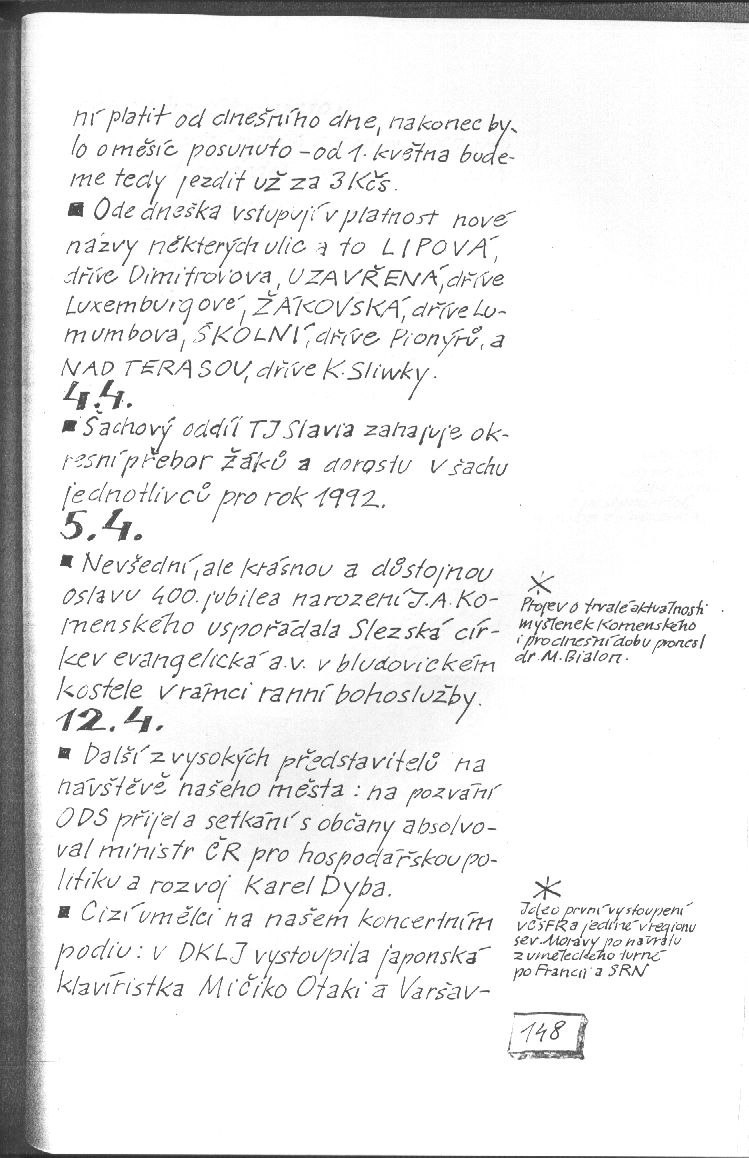 ní platit od dnešního dne, nakonec by-
lo o měsíc posunuto – od 1. května bude-
me tedy jezdit už za 3 Kčs.
■ Ode dneška vstupují v platnost nové
názvy některých ulic a to LIPOVÁ,
dříve Dimitrovova, UZAVŘENÁ, dříve
Luxemburgové, ŽÁKOVSKÁ, dříve Lu-
mumbova, ŠKOLNÍ, dříve Pionýrů, a
NAD TERASOU, dříve K. Sliwky.
4.4.
■ Šachový oddíl TJ Slavia zahajuje ok-
resní přebor žáků a dorostu v šachu
jednotlivců pro rok 1992.
5.4.
■ Nevšední, ale krásnou a důstojnou
oslavu 400. jubilea narození J. A. Ko-
menského uspořádala Slezská cír-
kev evangelická a.v. v bludovickém
kostele v rámci ranní bohoslužby.
* Projev o trvalé aktuálnosti
myšlenek Komenského
i pro dnešní dobu pronesl
dr. M. Bialon.
12.4.
■ Další z vysokých představitelů na
návštěvě našeho města : na pozvání
ODS přijel a setkání s občany absolvo-
val ministr ČR pro hospodářskou po-
litiku a rozvoj Karel Dyba.
■ Cizí umělci na našem koncertním
podiu : v DKLJ vystoupila japonská
klavíristka Mičiko Otaki a Varšav-
* Jde o první vystoupení
v ČSFR a jediné v regionu
sev. Moravy po návratu
z uměleckého turné
po Francii a SRN
148